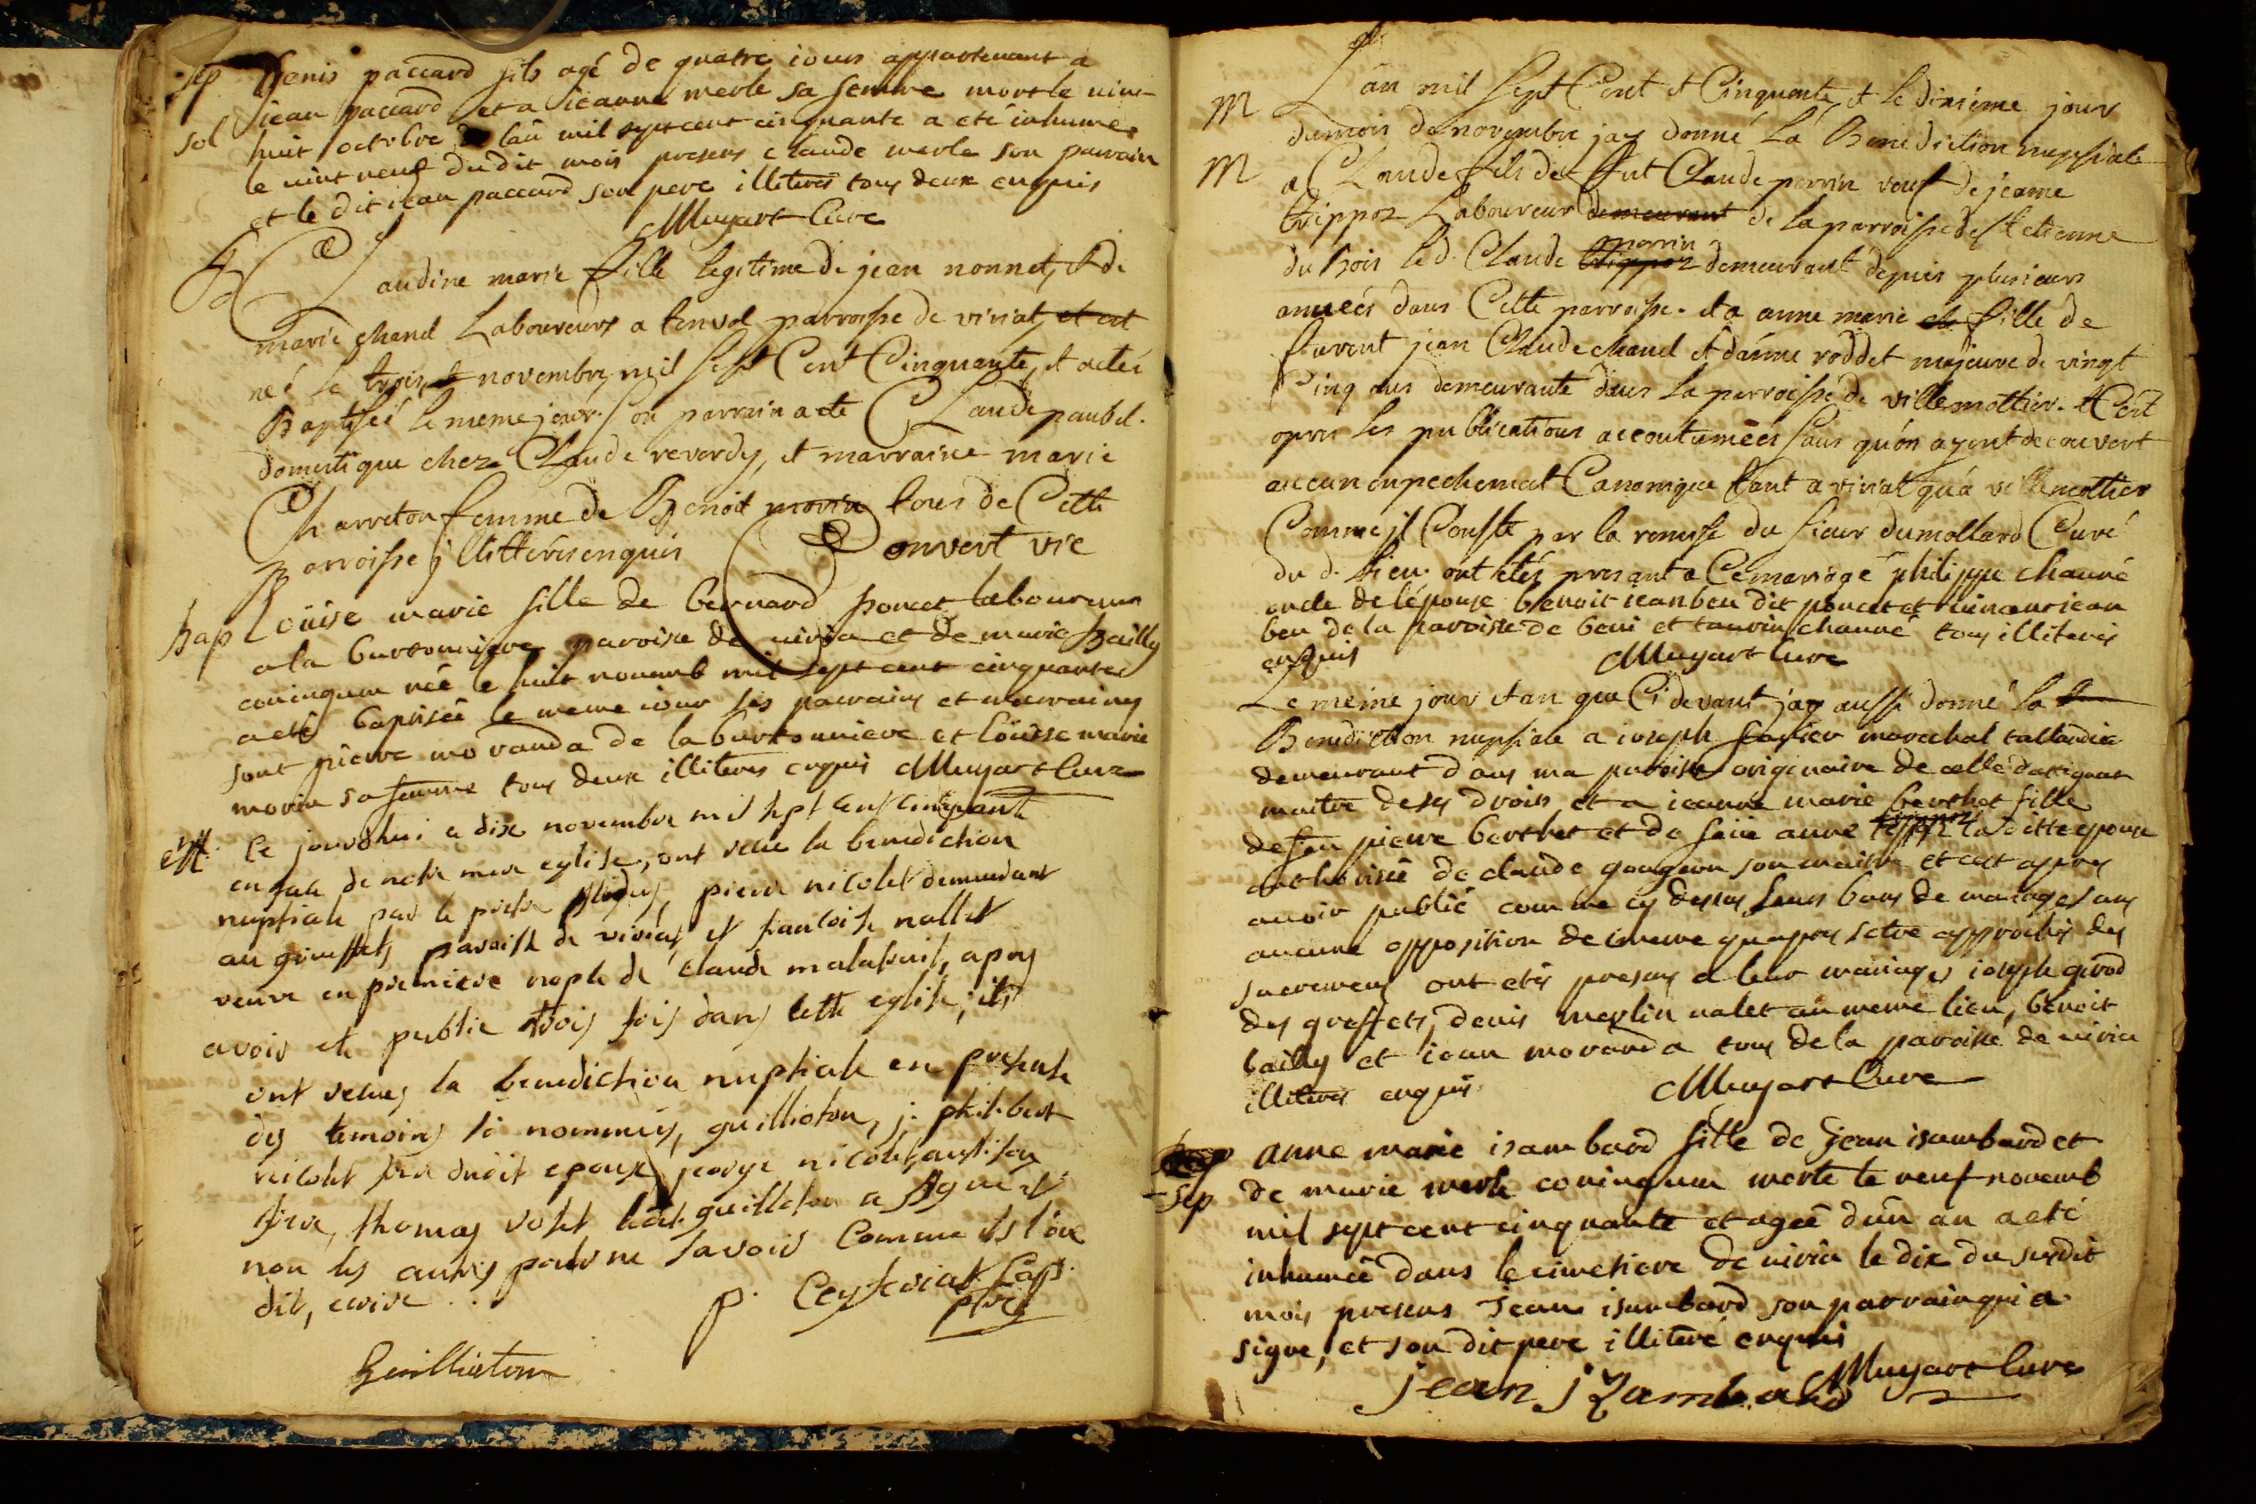 Sep Denis paccard fils agé de quatre iours appartenant a
jean paccard et a jeanne merle sa femme mort le vint
Sol huit octobre de lan mil sept cent cinquante a eté inhumé
le vint neuf du dit mois presens claude merle son parrain
et le dit iean paccard son pere illiteres tous deux enquis
Muyart Cure
B Claudine marie fille legitime de jean nonnet, et de
marie chanel Laboureurs a tanvol parroisse de viriat, et est
née le trois novembre mil sept Cent Cinquante, et a etéé
Baptiséé le meme jour. Son parrain a ete Claude paubel.
domestique chez Claude reverdy, et marraine marie
Charreton femme de Benoit morin tous de Cette
parroisse jllitterés enquis Convert vic
bap Loüise marie fille de bernard poncet laboureur
a la burtonniere paroisse de viria et de marie bailly
coniugum née le huit novemb mil sept cent cinquante
a eté baptiséé le meme iour ses parrains et marraines
sont pierre moranda de la burtonniere et Loüise marie
morin sa femme tous deux illiteres enquis Muyart Cure
M Ce jourdhui a dix novembre mil sept cent cinquante
en face de notre mere eglise, ont recue la benediction
nuptiale par le pretre pierre nicolet demeurant
au greffets paroisse de viriat, et francoise nallet
veuve en premiere nopce de claude malatrait, apres
avoir ete publie trois fois dans cette eglise, ils
ont recues la benediction nuptiale en presence
des temoins ci nommés, guillioton, j. philibert
nicolet du dudit epoux, nicolet, aussi son
frere, thomas volet ledit guilloton a signé et
non les autres pour ne savoir comme ils l'on
dit, ecrire.
p. Ceyseriat Cap.
ptre
Guillioton
Lan mil Sept Cent et Cinquante, et le dixiéme jour
M du mois de novembre jay donné La Benediction nuptiale
M a Claude fils de ffut Claude perrin veuf de jeanne
trippoz Laboureur demeurant de la parroisse de St etienne
du Bois led. Claude trippoz perrin demeurant depuis plusieurs
années dans Cette parroisse. et a anne marie fille de
fuvent jean Claude chanel et d'anne roddet majeure de vingt
Cinq ans demeurante dans la parroisse de villemottier. et C'est
apres les publications accoutumeés sans qu'on ayent decouvert
aucun enpechement Canonique tant a viriat qu'a villemottier
Comme jl Conste par la remise du sieur dumollard Curé
du d. lieu. ont etés presant a Ce mariage philippe chanué
oncle de l'épouse benoit ieanben dit poncet et iean
ben de la paroisse de beni et chanué tous illiteres
enquis Muyart Cure
Le meme jour et an que Ci devant j'ay aussi donné la
Benediction nuptiale a ioseph marechal tallandie
demeurant dans ma paroisse originaire de celle
maitre de ses droits et a ieanne marie berthet fille
de feu pierre berthet et de feüe anne trippoz laditte epouse
authorisée de claude gougeon son maitre et cest apres
avoir publié comme cy dessus leurs bans de mariage sans
aucune opposition de meme quapres setre approchés des
sacremens ont etés presens a leur mariage ioseph girod
des greffets, denis merlin valet au meme lieu, benoit
bailly et iean moranda tous de la paroisse de viria
illiteres enquis Muyart Cure
anne marie isambard fille de jean isambard et
Sep de marie merle coniugum morte le neuf novemb
mil sept cent cinquante et agéé d'un an a eté
inhuméé dans le cimetiere de viria le dix du susdit
mois presens jean isambard son parrain qui a
signe, et son dit pere illiteré enquis
jean jzambard Muyart Cure